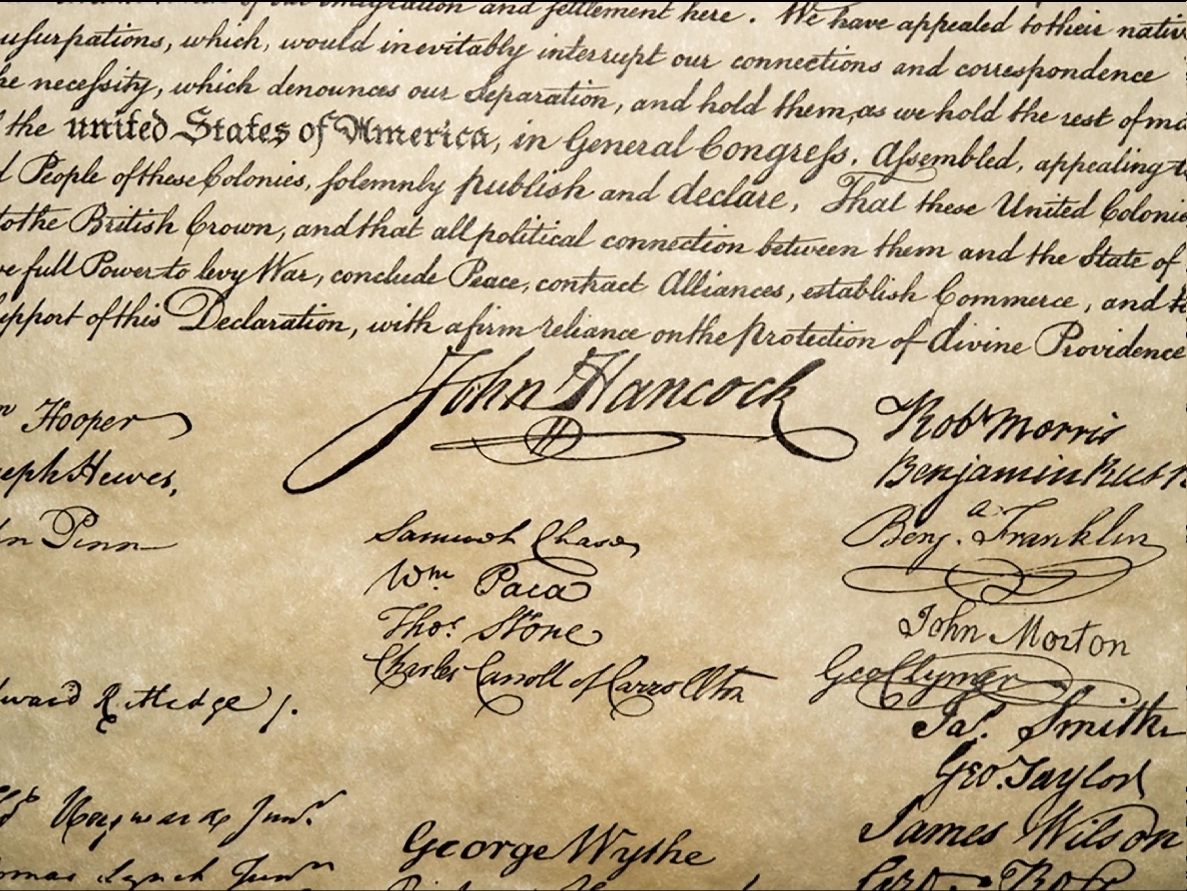 of our emigration and settlement here. We have appealed to their nativ
usurpations, which, would inevitably interrupt our connections and correspondence
he necessity, which denounces our Separation, and hold them, as we hold the rest of ma
the united States of America, in General Congress, Assembled, appealing t
d People of these Colonies, solemnly publish and declare, That these United Colonie
to the British Crown, and that all political connection between them and the State of
ve full Power to levy War, conclude Peace, contract Alliances, establish Commerce, and t
upport of this Declaration, with a firm reliance on the Protection of divine Providence
John Hancock
Wm Hooper
seph Hewes,
hn Penn
dward Rutledge /.
Thos Heyward Junr.
omas Lynch Junr
Samuel Chase
Wm. Paca
Thos. Stone
Charles Carroll of Carrollton
George Wythe
Robt Morris
Benjamin Rush
Benja. Franklin
John Morton
Geo Clymer
Jas. Smith
Geo. Taylor
James Wilson
Geo. Ross